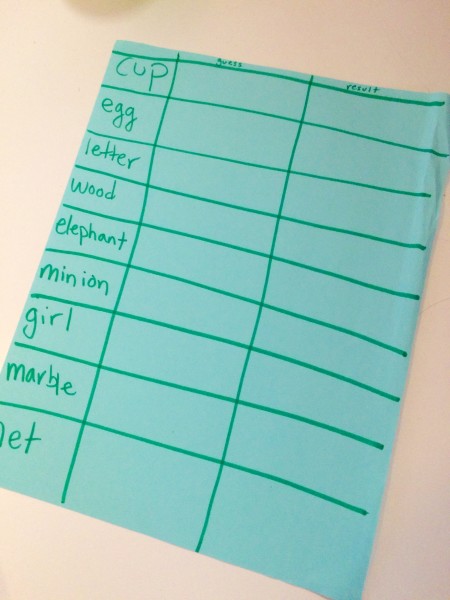 cup guess result
egg
letter
wood
elephant
minion
girl
marble